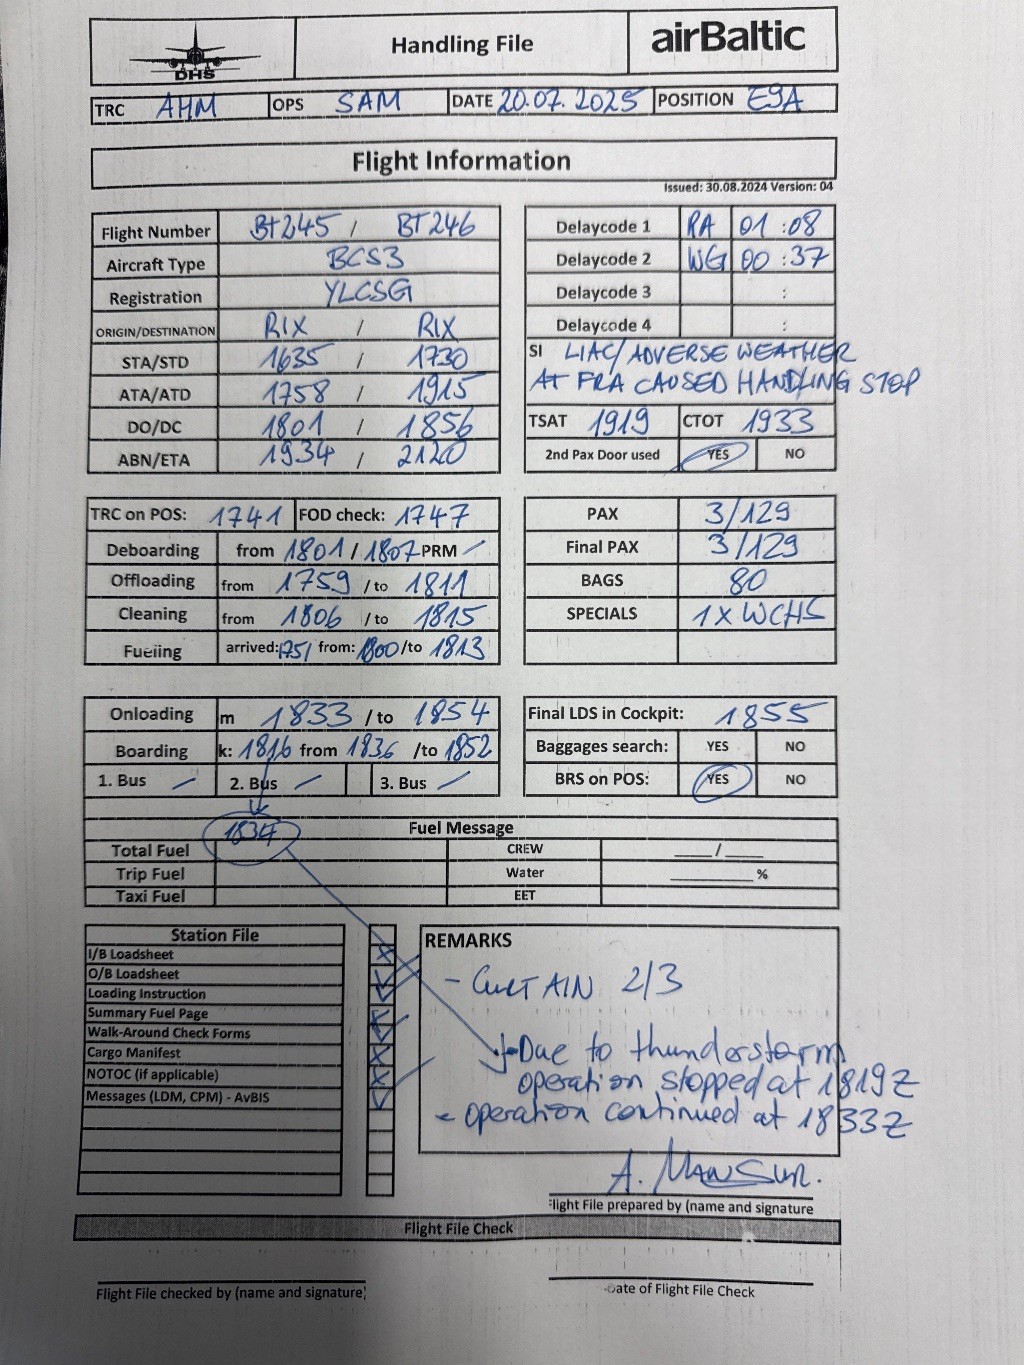 DHS Handling File airBaltic
TRC AHM OPS SAM DATE 20.07.2025 POSITION E9A
Flight Information
Issued: 30.08.2024 Version: 04
Flight Number BT245 / BT246
Aircraft Type BCS3
Registration YLCSG
ORIGIN/DESTINATION RIX / RIX
STA/STD 1635 / 1730
ATA/ATD 1758 / 1915
DO/DC 1801 / 1856
ABN/ETA 1934 / 2120
Delaycode 1 RA 01:08
Delaycode 2 WG 00:37
Delaycode 3 :
Delaycode 4 :
SI LIAC/ADVERSE WEATHER
AT FRA CAUSED HANDLING STOP
TSAT 1919 CTOT 1933
2nd Pax Door used YES NO
TRC on POS: 1741 FOD check: 1747
Deboarding from 1801 / 1807 PRM /
Offloading from 1759 /to 1811
Cleaning from 1806 /to 1815
Fueling arrived: 1751 from: 1800 /to 1813
PAX 3/129
Final PAX 3/129
BAGS 80
SPECIALS 1X WCHS
Onloading m 1833 /to 1854
Boarding k: 1816 from 1836 /to 1852
1. Bus / 2. Bus / 3. Bus /
Final LDS in Cockpit: 1855
Baggages search: YES NO
BRS on POS: YES NO
1834 Fuel Message
Total Fuel CREW ___/___
Trip Fuel Water ________%
Taxi Fuel EET
Station File
I/B Loadsheet
O/B Loadsheet
Loading Instruction
Summary Fuel Page
Walk-Around Check Forms
Cargo Manifest
NOTOC (if applicable)
Messages (LDM, CPM) - AvBIS
REMARKS
- CURTAIN 2/3
- Due to thunderstorm
operation stopped at 1819Z
- operation continued at 1833Z
A. MANSUR.
Flight File prepared by (name and signature
Flight File Check
Flight File checked by (name and signature)
Date of Flight File Check